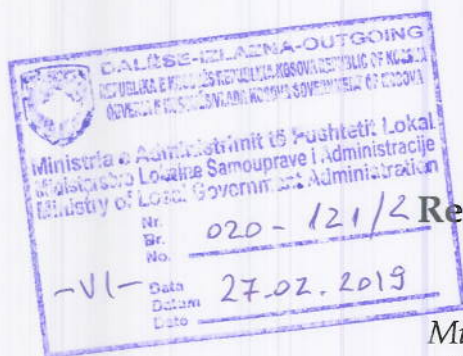 DALËSE-IZLAZNA-OUTGOING
REPUBLIKA E KOSOVËS REPUBLIKA KOSOVA REPUBLIC OF KOSOVA
Ministria e Administrimit të Pushtetit Lokal
Ministarstvo Lokalne Samouprave i Administracije
Ministry of Local Government Administration
Nr.
Br.
No. 020-121/2 Re
-VI- Data
Datum 27.02.2019
Date